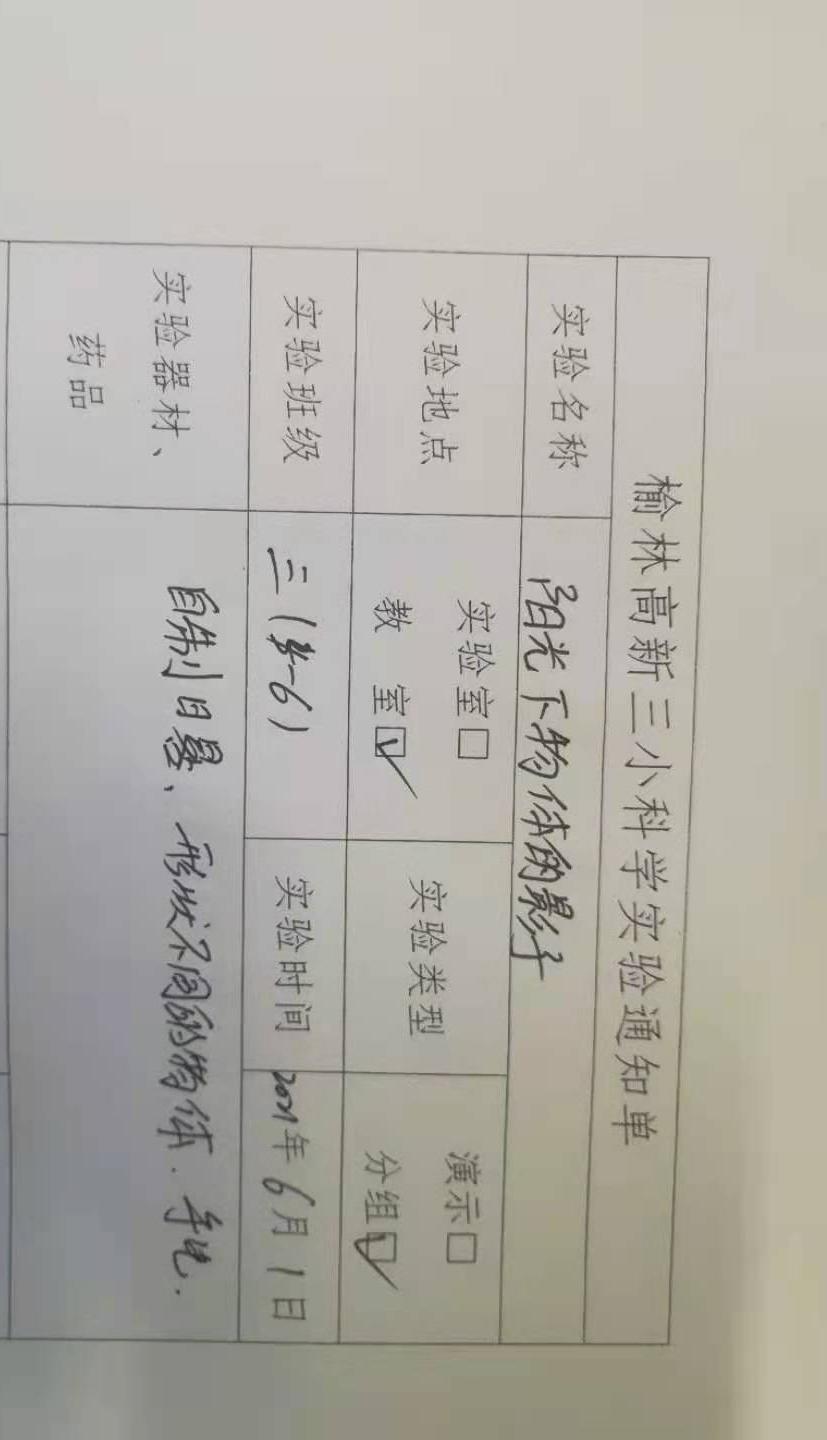 榆林高新三小科学实验通知单
实验名称 阳光下物体的影子
实验地点 实验室□ 教 室☑ 实验类型 演示□ 分组☑
实验班级 三(4-6) 实验时间 2021年6月1日
实验器材、药品 自制日晷、形状不同的物体.手电.